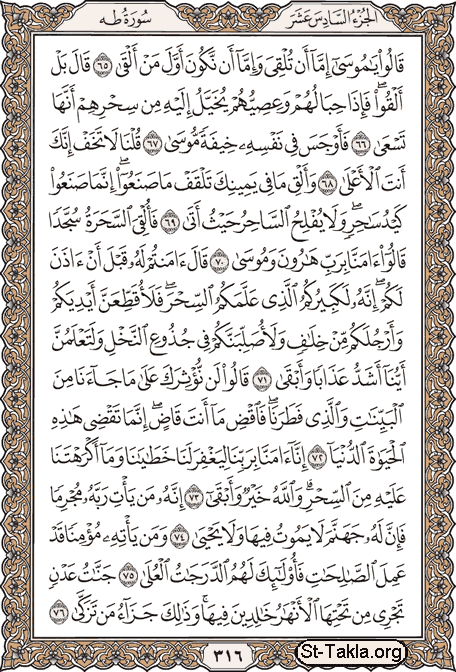 الجزء السادس عشر
سورة طه
قَالُوا۟ يَٰمُوسَىٰٓ إِمَّآ أَن تُلْقِىَ وَإِمَّآ أَن نَّكُونَ أَوَّلَ مَنْ أَلْقَىٰ ٦٥ قَالَ بَلْ
أَلْقُوا۟ ۖ فَإِذَا حِبَالُهُمْ وَعِصِيُّهُمْ يُخَيَّلُ إِلَيْهِ مِن سِحْرِهِمْ أَنَّهَا
تَسْعَىٰ ٦٦ فَأَوْجَسَ فِى نَفْسِهِۦ خِيفَةً مُّوسَىٰ ٦٧ قُلْنَا لَا تَخَفْ إِنَّكَ
أَنتَ ٱلْأَعْلَىٰ ٦٨ وَأَلْقِ مَا فِى يَمِينِكَ تَلْقَفْ مَا صَنَعُوٓا۟ ۖ إِنَّمَا صَنَعُوا۟
كَيْدُ سَٰحِرٍ ۖ وَلَا يُفْلِحُ ٱلسَّاحِرُ حَيْثُ أَتَىٰ ٦٩ فَأُلْقِىَ ٱلسَّحَرَةُ سُجَّدًا
قَالُوٓا۟ ءَامَنَّا بِرَبِّ هَٰرُونَ وَمُوسَىٰ ٧٠ قَالَ ءَامَنتُمْ لَهُۥ قَبْلَ أَنْ ءَاذَنَ
لَكُمْ ۖ إِنَّهُۥ لَكَبِيرُكُمُ ٱلَّذِى عَلَّمَكُمُ ٱلسِّحْرَ ۖ فَلَأُقَطِّعَنَّ أَيْدِيَكُمْ
وَأَرْجُلَكُم مِّنْ خِلَٰفٍ وَلَأُصَلِّبَنَّكُمْ فِى جُذُوعِ ٱلنَّخْلِ وَلَتَعْلَمُنَّ
أَيُّنَآ أَشَدُّ عَذَابًا وَأَبْقَىٰ ٧١ قَالُوا۟ لَن نُّؤْثِرَكَ عَلَىٰ مَا جَآءَنَا مِنَ
ٱلْبَيِّنَٰتِ وَٱلَّذِى فَطَرَنَا ۖ فَٱقْضِ مَآ أَنتَ قَاضٍ ۖ إِنَّمَا تَقْضِى هَٰذِهِ
ٱلْحَيَوٰةَ ٱلدُّنْيَآ ٧٢ إِنَّآ ءَامَنَّا بِرَبِّنَا لِيَغْفِرَ لَنَا خَطَٰيَٰنَا وَمَآ أَكْرَهْتَنَا
عَلَيْهِ مِنَ ٱلسِّحْرِ ۗ وَٱللَّهُ خَيْرٌ وَأَبْقَىٰٓ ٧٣ إِنَّهُۥ مَن يَأْتِ رَبَّهُۥ مُجْرِمًا
فَإِنَّ لَهُۥ جَهَنَّمَ لَا يَمُوتُ فِيهَا وَلَا يَحْيَىٰ ٧٤ وَمَن يَأْتِهِۦ مُؤْمِنًا قَدْ
عَمِلَ ٱلصَّٰلِحَٰتِ فَأُو۟لَٰٓئِكَ لَهُمُ ٱلدَّرَجَٰتُ ٱلْعُلَىٰ ٧٥ جَنَّٰتُ عَدْنٍ
تَجْرِى مِن تَحْتِهَا ٱلْأَنْهَٰرُ خَٰلِدِينَ فِيهَا ۚ وَذَٰلِكَ جَزَآءُ مَن تَزَكَّىٰ ٧٦
٣١٦
St-Takla.org